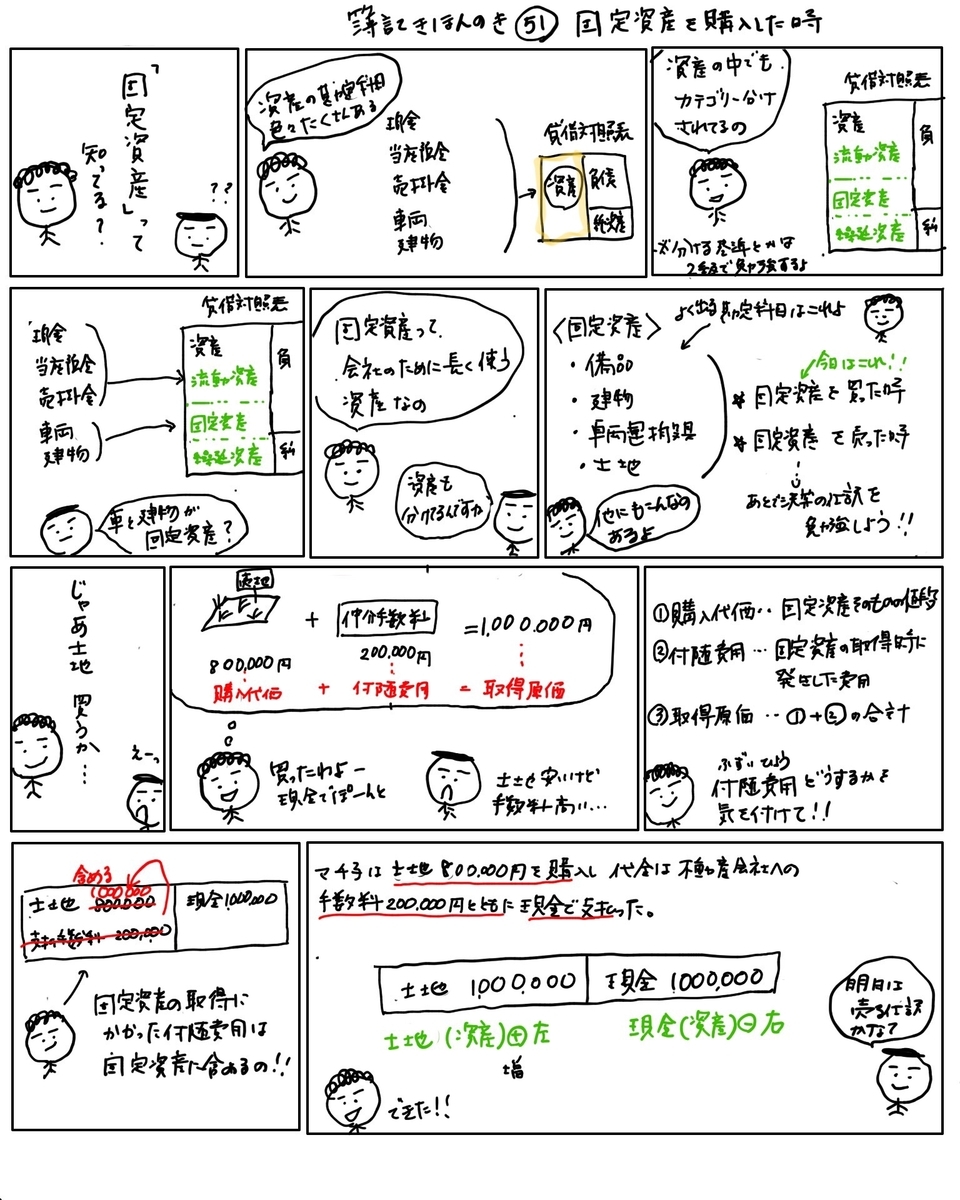 簿記きほんのき 51 固定資産を購入した時
「固定資産」って
知ってる?
??
資産の勘定科目
色々たくさんある
現金
当座預金
売掛金
車両
建物
貸借対照表
資産
負債
純資産
資産の中でも
カテゴリー分け
されてるの
貸借対照表
資産
流動資産
固定資産
繰延資産
負
純
※分ける基準とかは
2級で勉強するよ
現金
当座預金
売掛金
車両
建物
貸借対照表
資産
流動資産
固定資産
繰延資産
負
純
車と建物が
固定資産?
固定資産って
会社のために長く使う
資産なの
資産も
分けてるんですか
〈固定資産〉
よく出る勘定科目はこれよ
・備品
・建物
・車両運搬具
・土地
今日はこれ!!
* 固定資産を買った時
* 固定資産を売った時
あとで決算の仕訳を
勉強しよう!!
他にもこんなの
あるよ
じゃあ土地
買うか…
えーっ
+
仲介手数料
=1,000,000円
800,000円
200,000円
購入代価 + 付随費用 = 取得原価
買ったわよー
現金でぽーんと
土地安いけど
手数料高い…
①購入代価‥固定資産そのものの値段
②付随費用…固定資産の取得時に
発生した費用
③取得原価‥①+②の合計
ふずいひよう
付随費用どうするかを
気を付けて!!
含める
1000000
土地 800000
現金1000000
支払手数料 200,000
固定資産の取得に
かかった付随費用は
固定資産に含めるの!!
マチ子は土地800,000円を購入し代金は不動産会社への
手数料200,000円とともに現金で支払った。
土地 1,000,000
現金 1,000,000
土地(資産)⊕左
現金(資産)⊖右
増
できた!!
明日は
売る仕訳
かなて